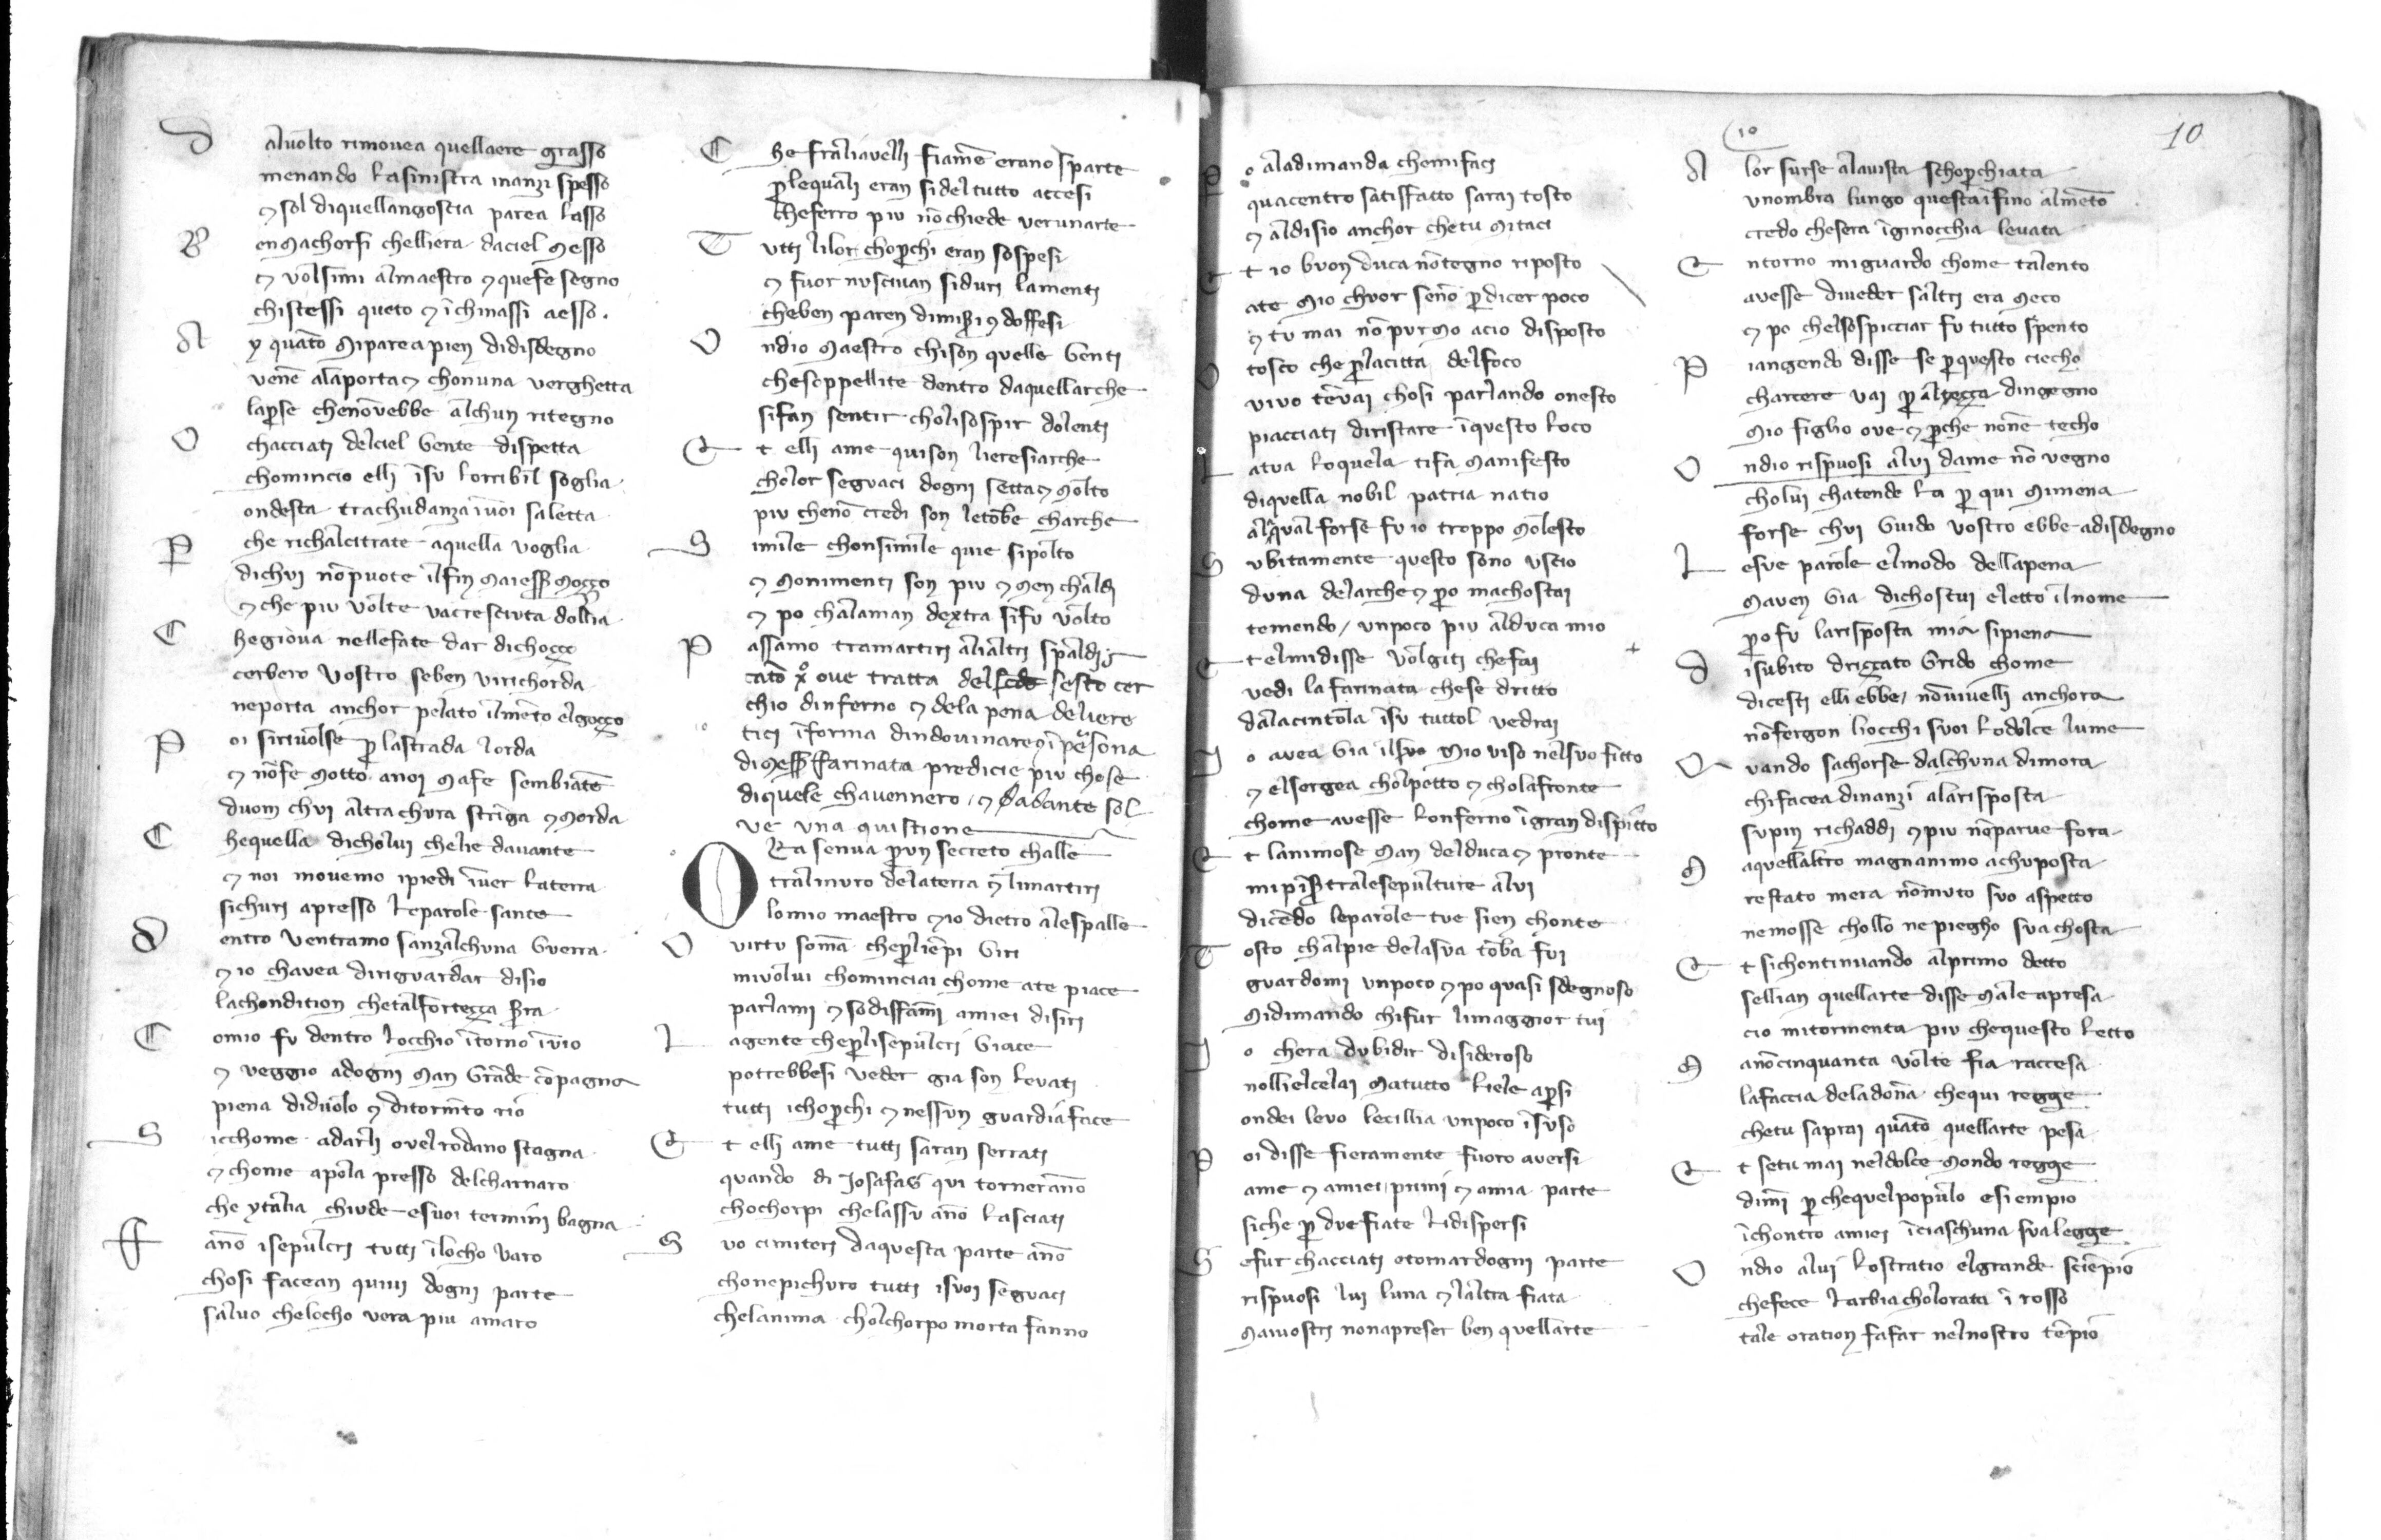 D aluolto rimouea quellaere grasso
menando lasinistra inanzi spesso
⁊ sol diquellangoscia parea lasso
B en machorsi chelliera daciel messo
⁊ uolsimi almaestro ⁊ quefe segno
chistessi queto ⁊ ĩchinassi aesso.
A y quãto miparea pien didisdegno
uenẽ alaporta ⁊ chonuna uerghetta
lap̲se chenõuebbe alchun ritegno
O chacciati delciel gente dispetta
chomincio elli ĩsu lorribil soglia
ondesta trachudanza ĩuoi saletta
P che richalcitrate aquella uoglia
dichui nõpuote ilfin maiess̲ mozzo
⁊ che piu uolte uacresciuta dollia
C hegioua nellefate dar dichozzo
cerbero uostro seben uirichorda
neporta anchor pelato ilmẽto elgozzo
P oi siriuolse p̲ lastrada lorda
⁊ nõfe motto anoi mafe sembiãte
duom chui altra chura stringa ⁊ morda
C hequella dicholui chelie dauante
⁊ noi mouemo ipiedi ĩuer laterra
sichuri apresso leparole sante
D entro uentramo sanzalchuna guerra
⁊ io chauea diriguardar disio
lachondition chetalfortezza s̲ra
C omio fu dentro locchio ĩtorno ĩuio
⁊ ueggio adogni man grãde cõpagna
piena diduolo ⁊ ditormẽto rio
S icchome adarli ouelrodano stagna
⁊ chome apola presso delcharnaro
che ytalia chiude esuoi termini bagna
ff anõ isepulcri tutti ilocho uaro
chosi facean quiui dogni parte
saluo chelocho uera piu amaro
C he fraliauelli fiamẽ erano sparte
p̲lequali eran sideltutto accesi
cheferro piu nõchiede uerunarte
T utti lilor chop̲chi eran sospesi
⁊ fuor nusciuan siduri lamenti
cheben paren dimis̲i ⁊ doffesi
O ndio maestro chison quelle genti
cheseppellite dentro daquellarche
sifan sentir cholisospir dolenti
E t elli ame quison lieresiarche
cholor seguaci dogni setta ⁊ molto
piu chenõ credi son letõbe charche
S imile chonsimile quie sipolto
⁊ monimenti son piu ⁊ men chaldi
⁊ po chalaman dextra sifu uolto
P assamo tramartiri alialtri spaldi
cãto x° oue tratta del sesto cer
chio dinferno ⁊ dela pena deliere
tici ĩforma dindouinare ĩ p̲sona
dimess̲ ffarinata predicie piu chose
diquele chauennero, ⁊ dadante sol
ue una quistione
O Ra senua p̲un secreto challe
tralmuro delaterra ⁊ limartiri
lomio maestro ⁊ io dietro alespalle
O uirtu somã chep̲liẽpi giri
miuolui chominciai chome ate piace
parlami ⁊ sodisfãmi amiei disiri
L agente chep̲lisepulcri giace
potrebbesi ueder gia son leuati
tutti ichop̲chi ⁊ nessun guardia face
E t elli ame tutti saran serrati
quando di Josafas qui tornerãno
chochorpi chelassu ano lasciati
S uo cimiteri daquesta parte anõ
chonepichuro tutti isuoi seguaci
chelanima cholchorpo morta fanno
P o aladimanda chemifaci
quacentro satisfatto sarai tosto
⁊ aldisio anchor chetu mitaci
E t io buon duca nõtegno riposto
ate mio chuor senõ p̲dicer poco
⁊ tu mai nõ purmo acio disposto
O tosco che p̲lacitta delfoco
uiuo tẽuai chosi parlando onesto
piacciati diristare ĩquesto loco
L atua loquela tifa manifesto
diquella nobil patria natio
alqual forse fu io troppo molesto
S ubitamente questo sono uscio
duna delarche ⁊ p̲o machostai
temendo, unpoco piu alduca mio
E t elmidisse uolgiti chefai
uedi la farinata chese dritto
dalacintola ĩsu tuttol uedrai
I o auea gia mio uiso nelsuo fitto
⁊ elsergea cholpetto ⁊ cholafronte
chome auesse lonferno ĩgran dispitto
E t lanimose man delduca ⁊ pronte
mipĩs̲ tralesepulture alui
dicẽdo leparole tue sien chonte
T osto chalpie delasua tõba fui
guardomi unpoco ⁊ po quasi sdegnoso
midimando chifur limaggior tui
I o chera dubidir disideroso
nolliel celai matutto liele ap̲si
ondei leuo lecillia unpoco ĩsuso
P oi disse fieramente fuoro auersi
ame ⁊ amiei primi ⁊ amia parte
siche p̲ due fiate lidispersi
S efur chacciati etornardogni parte
rispuosi lui luna ⁊ laltra fiata
mauostri nonapreser ben quellarte
10
10
A lor surse alauista schop̲chiata
unombra lungo questa ĩfino almẽto
credo chesera ĩginocchia leuata
E ntorno miguardo chome talento
auesse diueder saltri era meco
⁊ po chelsospicciar fu tutto spento
P iangendo disse se p̲questo ciecho
charcere uai p̲ altezza dingegno
mio figlio oue ⁊ p̲che nonẽ techo
O ndio rispuosi alui dame nõ uegno
cholui chatende la p̲ qui mimena
forse chui guido uostro ebbe adisdegno
L esue parole elmodo dellapena
mauen gia dichostui eletto ilnome
p̲o fu larisposta mia sipiena
D isubito drizzato grido chome
dicesti elli ebbe, nõuiuelli anchora
nõfergon liocchi suoi lodolce lume
Q uando sachorse dalchuna dimora
chifacea dinanzi alarisposta
supin richaddi ⁊ piu nõparue fora
M aquellaltro magnanimo achuposta
restato mera nõmuto suo aspetto
nemosse chollo ne piegho sua chosta
E t sichontinuando alprimo detto
sellian quellarte disse male apresa
cio mitormenta piu chequesto letto
M anõcinquanta uolte fia raccesa
lafaccia deladona chequi regge
chetu saprai quãto quellarte pesa
E t setu mai neldolce mondo regge
dimi p̲ chequelpopulo esi empio
ĩchontro amiei ĩciaschuna sualegge
O ndio alui lostratio elgrande sciẽpio
chefece larbia cholorata ĩ rosso
tale oration fafar nelnostro tẽpio